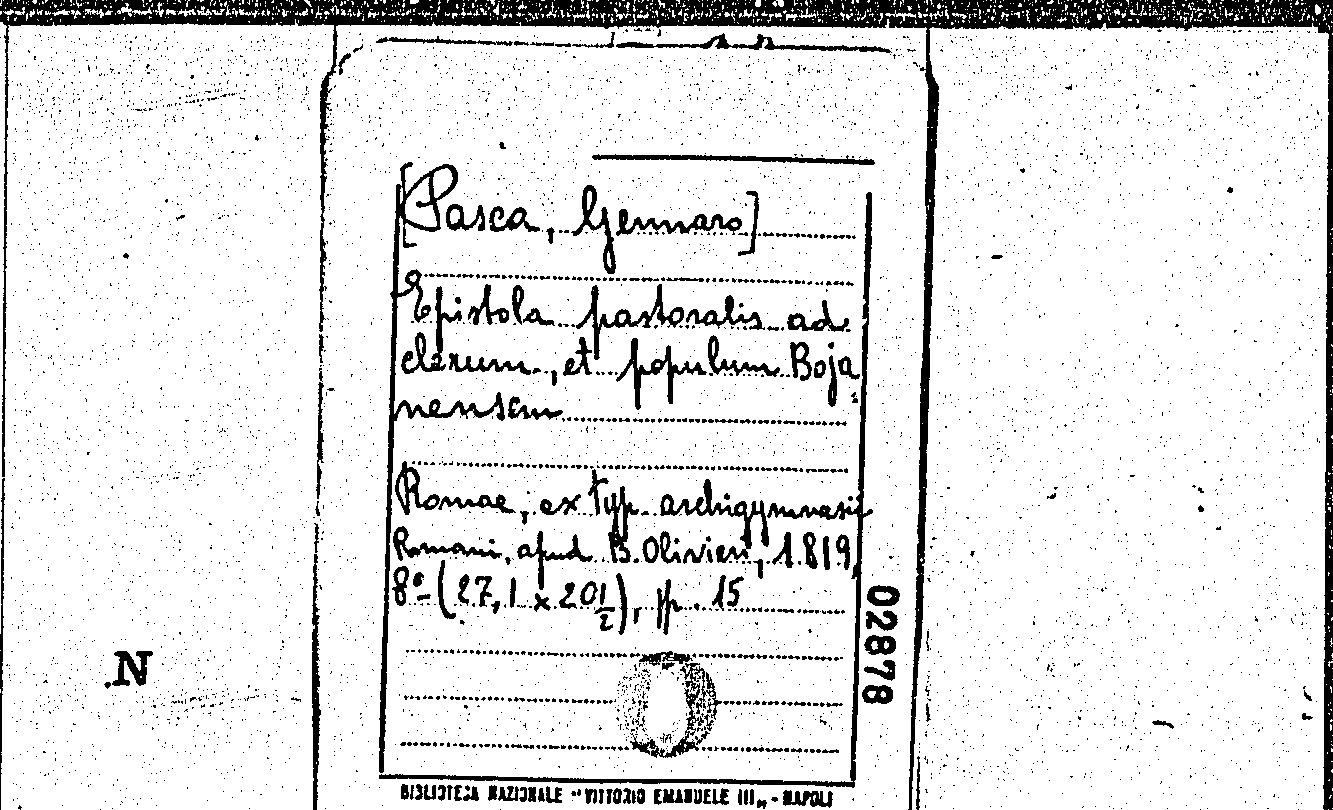 [Pasca, Gennaro]
Epistola pastoralis ad
clerum, et populum Boja
nensem
Romae, ex typ. archigymnasii
Romani, apud B. Olivieri, 1819,
8º (27,1 x 20 1/2), pp. 15
02878
.N
BIBLIOTECA NAZIONALE "VITTORIO EMANUELE III„ - NAPOLI